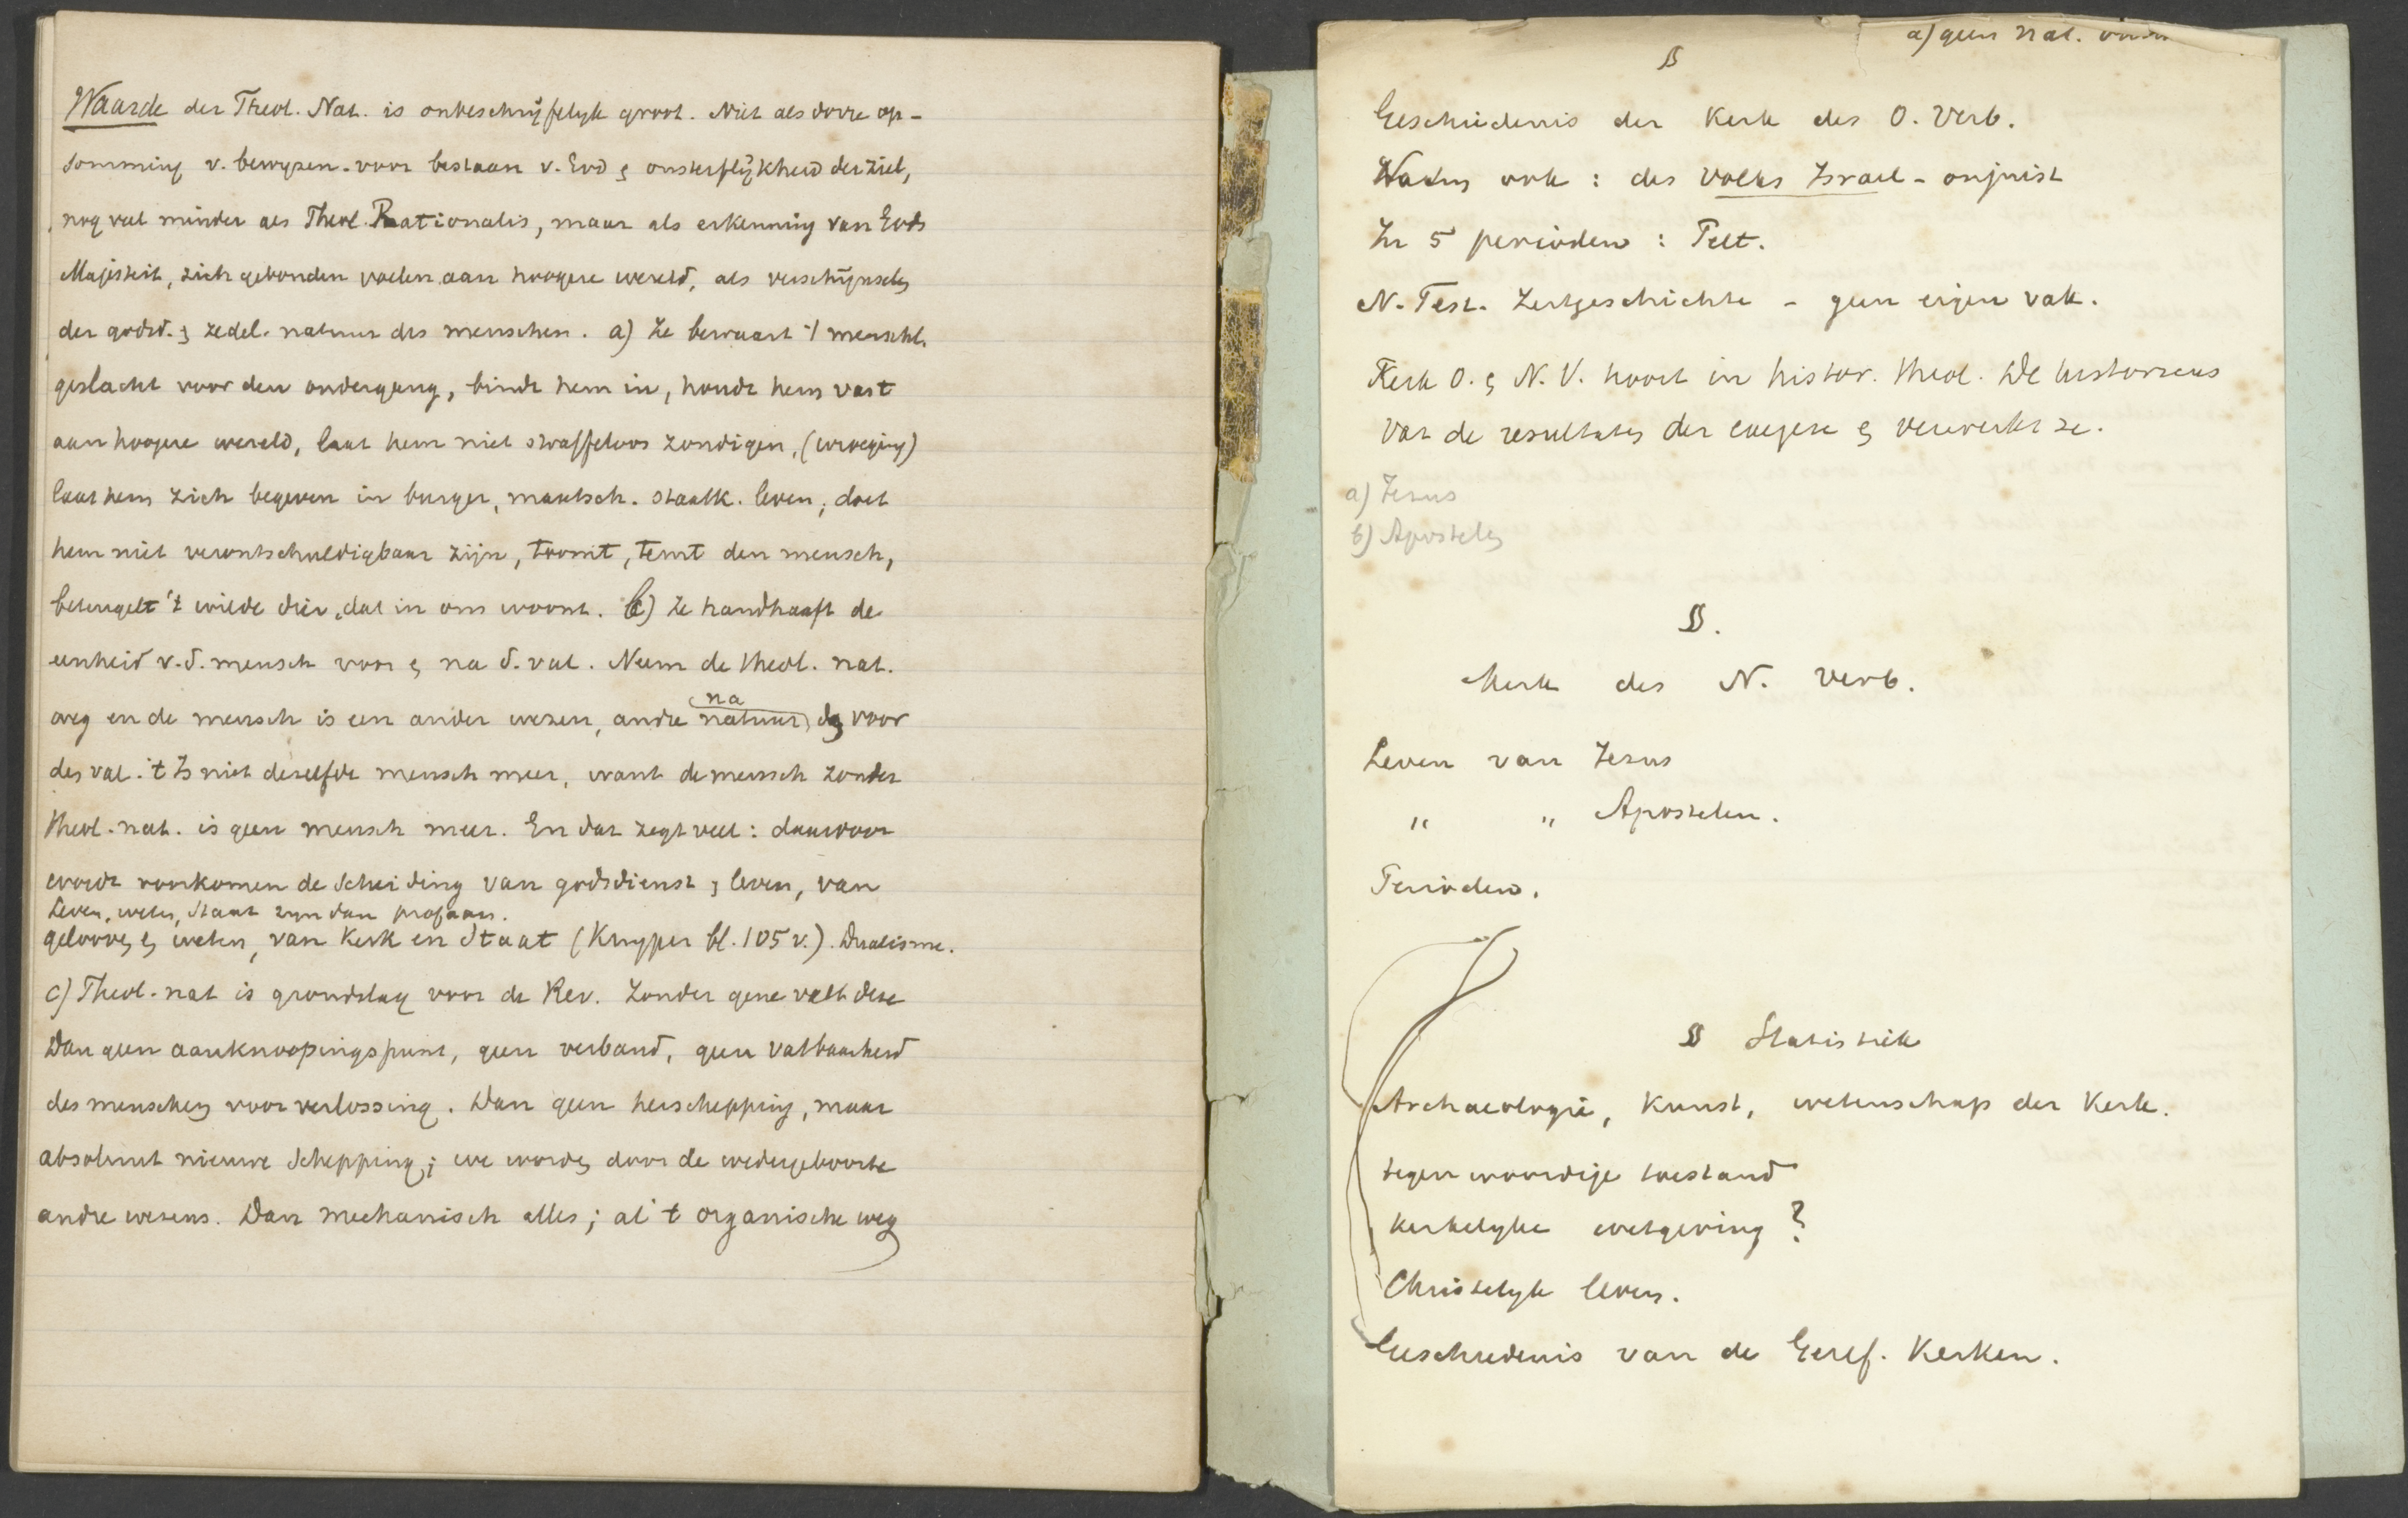 Waarde der Theol. Nat. is onbeschrijfelijk groot. Niet als dorre op-
somming v. bewyzen voor bestaan v. God & onsterflijkheid der ziel,
nog veel minder als Theol. Rationalis, maar als erkenning van Gods
Majesteit, zich gebonden voelen aan hoogere wereld, als verschijnselen
der godsd. & zedel. natuur des menschen. a) Ze bewaart 't menschl.
geslacht voor den ondergang, bindt hem in, houdt hem vast
aan hoogere wereld, laat hem niet straffeloos zondigen, (wroeging)
laat hem zich begeven in burger, maatsch. staatk. leven; doet
hem niet verontschuldigbaar zijn, toomt, temt den mensch,
beteugelt 't wilde dier, dat in ons woont. b) Ze handhaaft de
eenheid v. d. mensch voor & na d. val. Neem de theol. nat.
weg en de mensch is een ander wezen, andre natuur na dan voor
den val. 't Is niet dezelfde mensch meer, want de mensch zonder
theol. nat. is geen mensch meer. En dat zegt veel: daardoor
wordt voorkomen de scheiding van godsdienst & leven, van
Leven, weten, Staat zyn dan profaan.
gelooven & weten, van Kerk en Staat (Kuyper bl. 105 v.). Dualisme.
c) Theol. nat is grondslag voor de Rev. Zonder gene valt deze
Dan geen aanknoopingspunt, geen verband, geen vatbaarheid
des menschen voor verlossing. Dan geen herschepping, maar
absoluut nieuwe Schepping; we worden door de wedergeboorte
andre wezens. Dan mechanisch alles; al 't organische weg
a) geen nat.
§
Geschiedenis der Kerk des O. Verb.
ook : des Volks Israel - onjuist
In 5 perioden : Pelt.
N. Test. Zeitgeschichte - geen eigen vak.
Kerk O. & N. V. hoort in histor. theol. De historicus
vat de resultaten der exegese & verwerkt ze.
a) Jezus
b) Apostelen
§.
Kerk des N. Verb.
Leven van Jezus
" " Apostelen.
Perioden.
§ Statistiek
Archaeologie, Kunst, wetenschap der Kerk.
tegenwoordige toestand
kerkelyke wetgeving ?
Christelyk leven.
Geschiedenis van de Geref. Kerken.